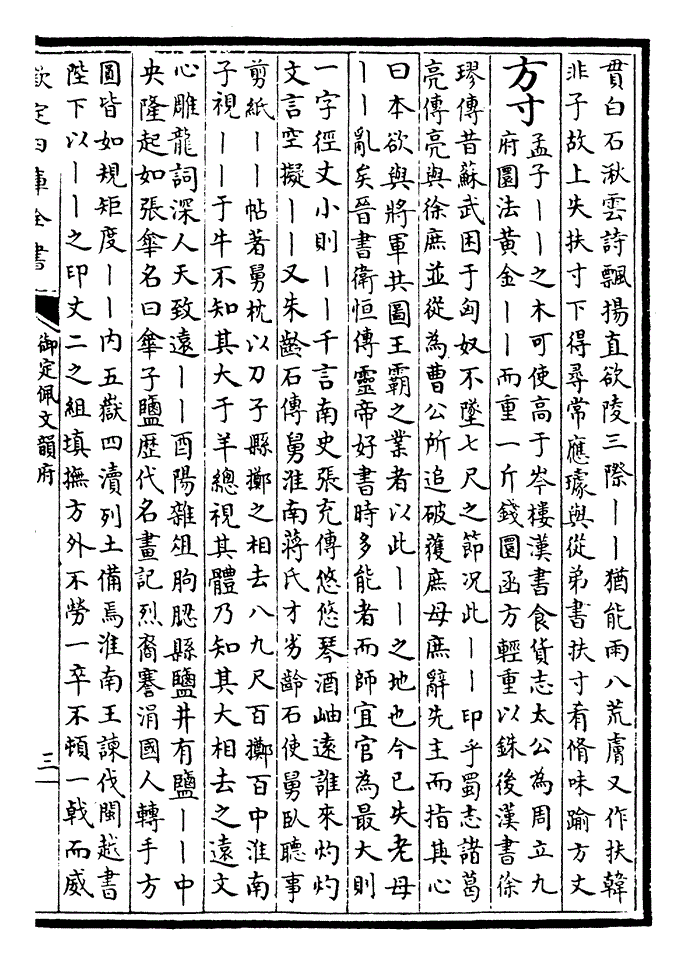 貫白石湫雲詩飄揚直欲陵三際丨丨猶能雨八荒膚又作扶韓
非子故上失扶寸下得尋常應璩與從弟書扶寸肴脩味踰方丈
方寸
孟子丨丨之木可使高于岑樓漢書食貨志太公為周立九
府圜法黃金丨丨而重一斤錢圜函方輕重以銖後漢書徐
璆傳昔蘇武困于匈奴不墜七尺之節况此丨丨印乎蜀志諸葛
亮傳亮與徐庶並從為曹公所追破獲庶母庶辭先主而指其心
曰本欲與將軍共圖王霸之業者以此丨丨之地也今已失老母
丨丨亂矣晉書衛恒傳靈帝好書時多能者而師宜官為最大則
一字徑丈小則丨丨千言南史張充傳悠悠琴酒岫遠誰來灼灼
文言空擬丨丨又朱齡石傳舅淮南蔣氏才劣齡石使舅臥聽事
剪紙丨丨帖著舅枕以刀子縣擲之相去八九尺百擲百中淮南
子視丨丨于牛不知其大于羊總視其體乃知其大相去之遠文
心雕龍詞深人天致遠丨丨酉陽雜俎朐䏰縣鹽井有鹽丨丨中
央隆起如張傘名曰傘子鹽歷代名畫記烈裔謇涓國人轉手方
圓皆如規矩度丨丨内五嶽四瀆列土備焉淮南王諫伐閩越書
陛下以丨丨之印丈二之組填撫方外不勞一卒不頓一戟而威
欽定四庫全書
御定佩文韻府
三